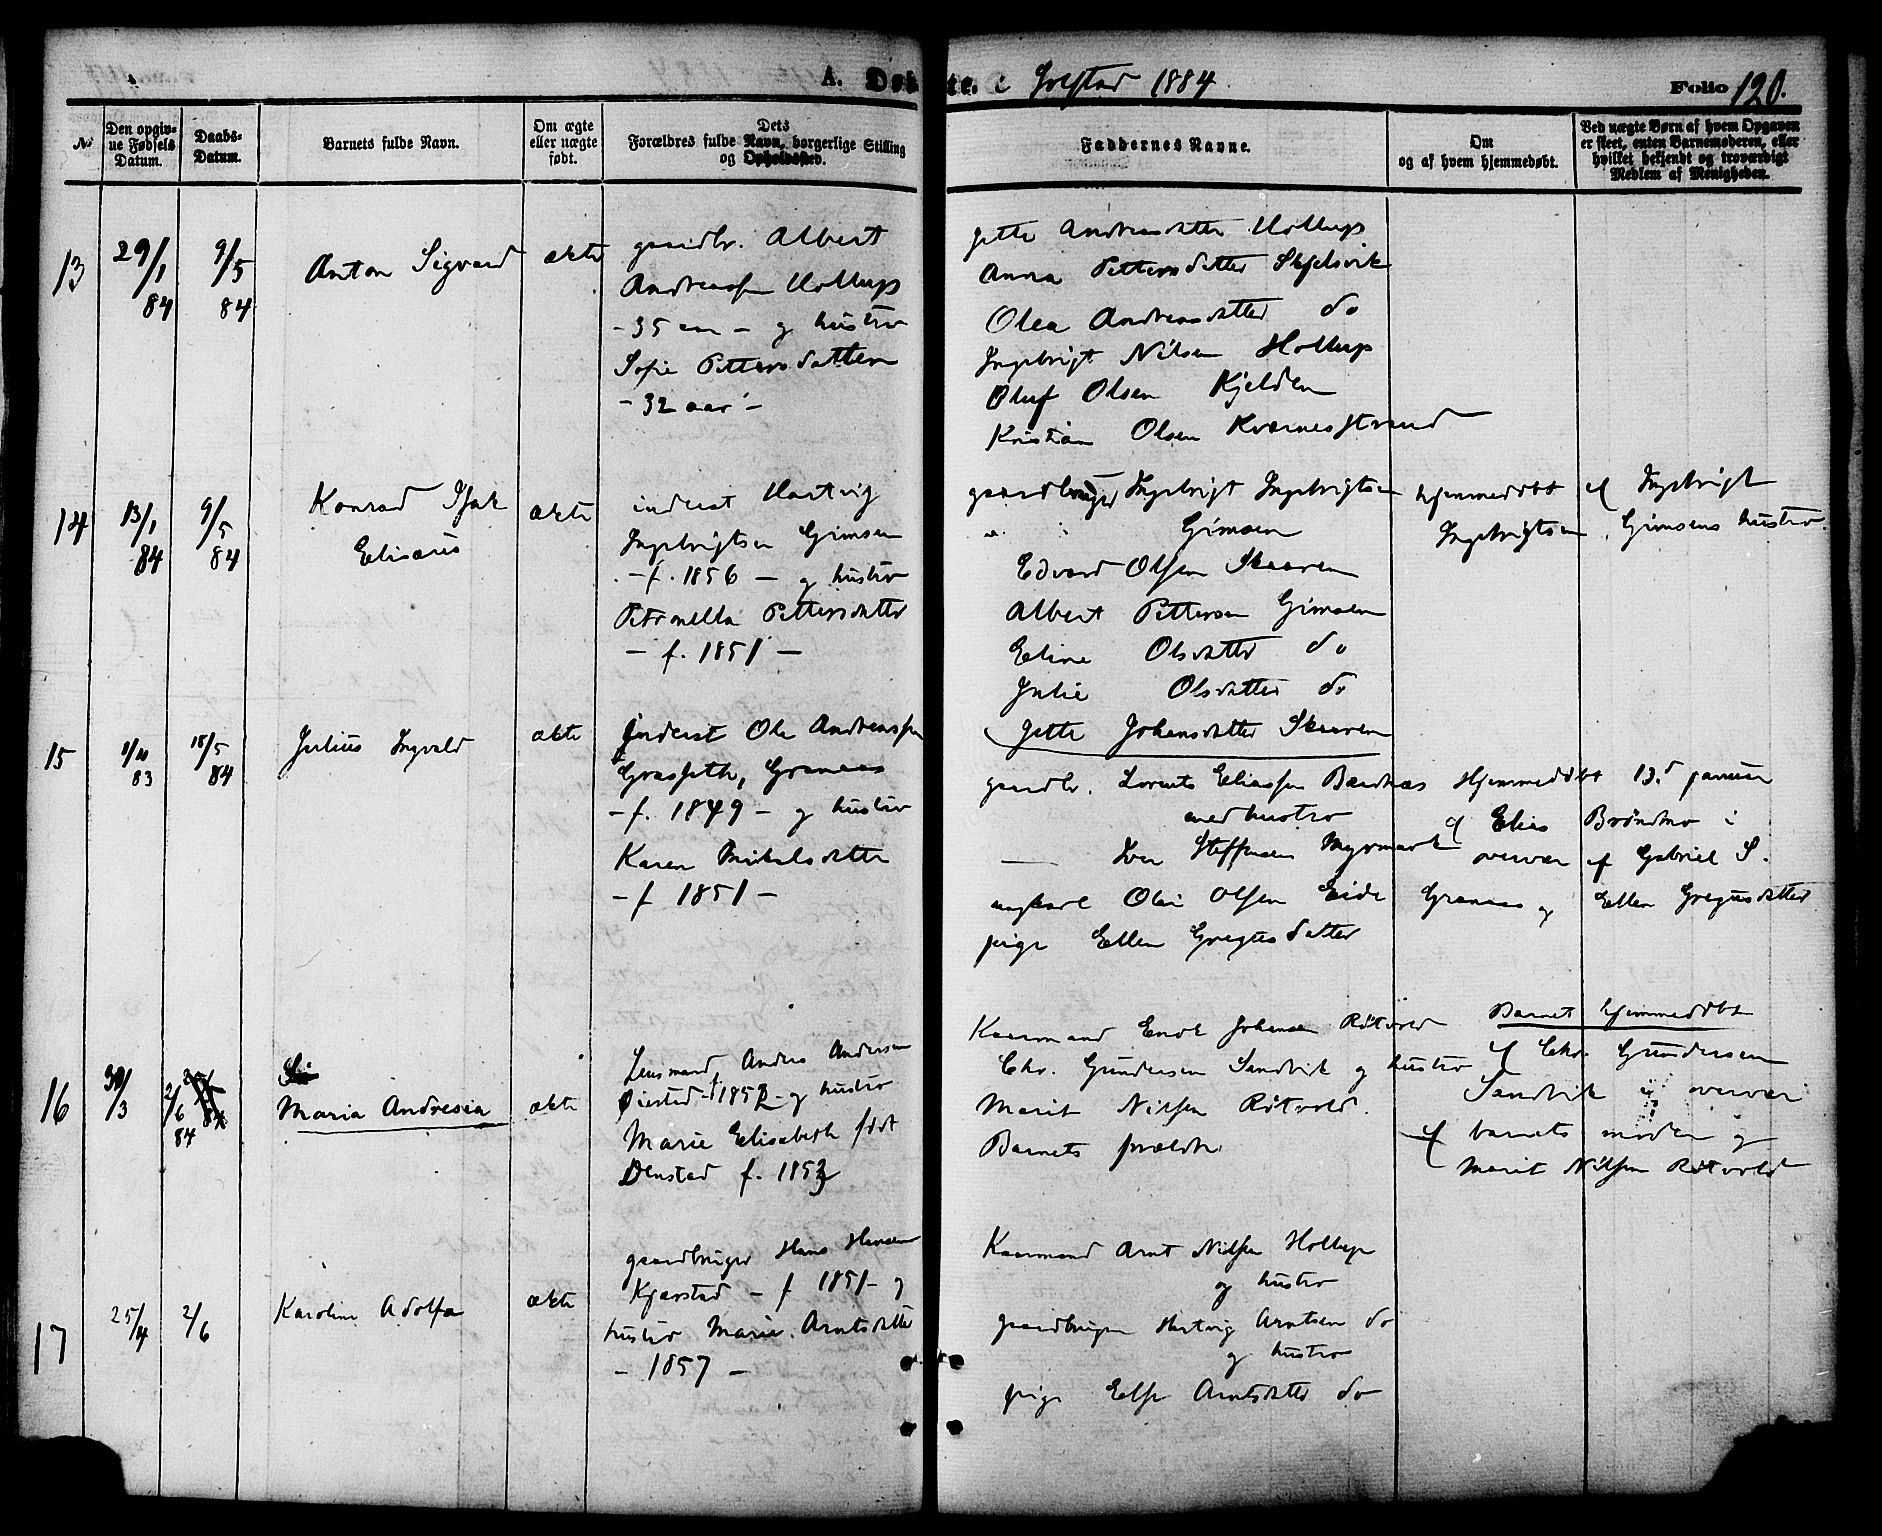 A. Døbte. i Grefstad 1884 Folio 120.
№
Den opgivne Fødsels Datum.
Daabs-Datum.
Barnets fulde Navn.
Om ægte eller uægte født.
Dets
Forældres fulde Navn, borgerlige Stilling
og Opholdssted.
Faddernes Navne.
Om
og af hvem hjemmedøbt.
Ved uægte Børn af hvem Opgaven
er skeet, enten Barnemoderen, eller
hvilket bekjendt og troværdigt
Medlem af Menigheden.
13 29/1 84 9/5 84 Anton Sigvard ækte
gaardbr. Albert
Andreassen Holtup
- 35 aar - og hustru
Sofie Pettersdatter
- 32 aar -
Jette Andreasdatter Holtup
Anna Pettersdatter Skjelsvik
Olea Andreasdatter do
Ingebrigt Nilsen Holtup
Oluf Olsen Kjelden
Kristian Olsen Kvernesstrand
14 13/1 84 9/5 84 Konrad Isak
Elisæus
ækte
inderst Hartvig
Ingebrigtsen Gimsen
- f. 1856 - og hustru
Petronella Pettersdatter
- f. 1851 -
gaardbruger Ingebrigt Ingebrigtsen
Gimsen
Edvard Olsen Skaaren
Albert Pettersen Gimsen
Eline Olsdatter do
Julie Olsdatter do
Jette Johansdatter Skaaren
hjemmedøbt af Ingebrigt
Ingebrigtsen Gimsens hustru.
15 83 18/5 84 Julius Ingvald ækte
Inderst Ole Andreassen
Granaas
- f. 1849 - og hustru
Karen Mikalsdatter
- f 1851 -
gaardbr. Lorents Eliassen Bærkaas
med hustru
Iver Steffensen Myrmark
ungkarl Ole Olsen Eide
pige Ellen Gregusdatter
Hjemmedøbt 13d januar
af Elias Brøndmo i
overvær af Gabriel S.
Granaas og Ellen Gregusdatter
16 30/3 2/6 84 Maria Andresia ækte
Lensmand Anders Andersen
f 1852 og hustru
Marie Elisabeth født
Denstad f. 1853
Kaarmand Enok Johansen Røtvold
Chr. Gundersen Sandvik og hustru
Marit Nilsen Røtvold.
Barnets forældre
Barnet hjemmedøbt
af Chr. Gundersen
Sandvik i overvær
af barnets moder og
Marit Nilsen Røtvold
17 25/4 2/6 Karoline Adolfa ækte
gaardbruger Hans Hansen
Kjærstad - f 1851 - og
hustru Marie Arntsdatter
- 1857 -
Kaarmand Arnt Nilsen Holtup
og hustru
gaardbruger Hartvig Arntsen do
og hustru
pige Else Arntsdatter do